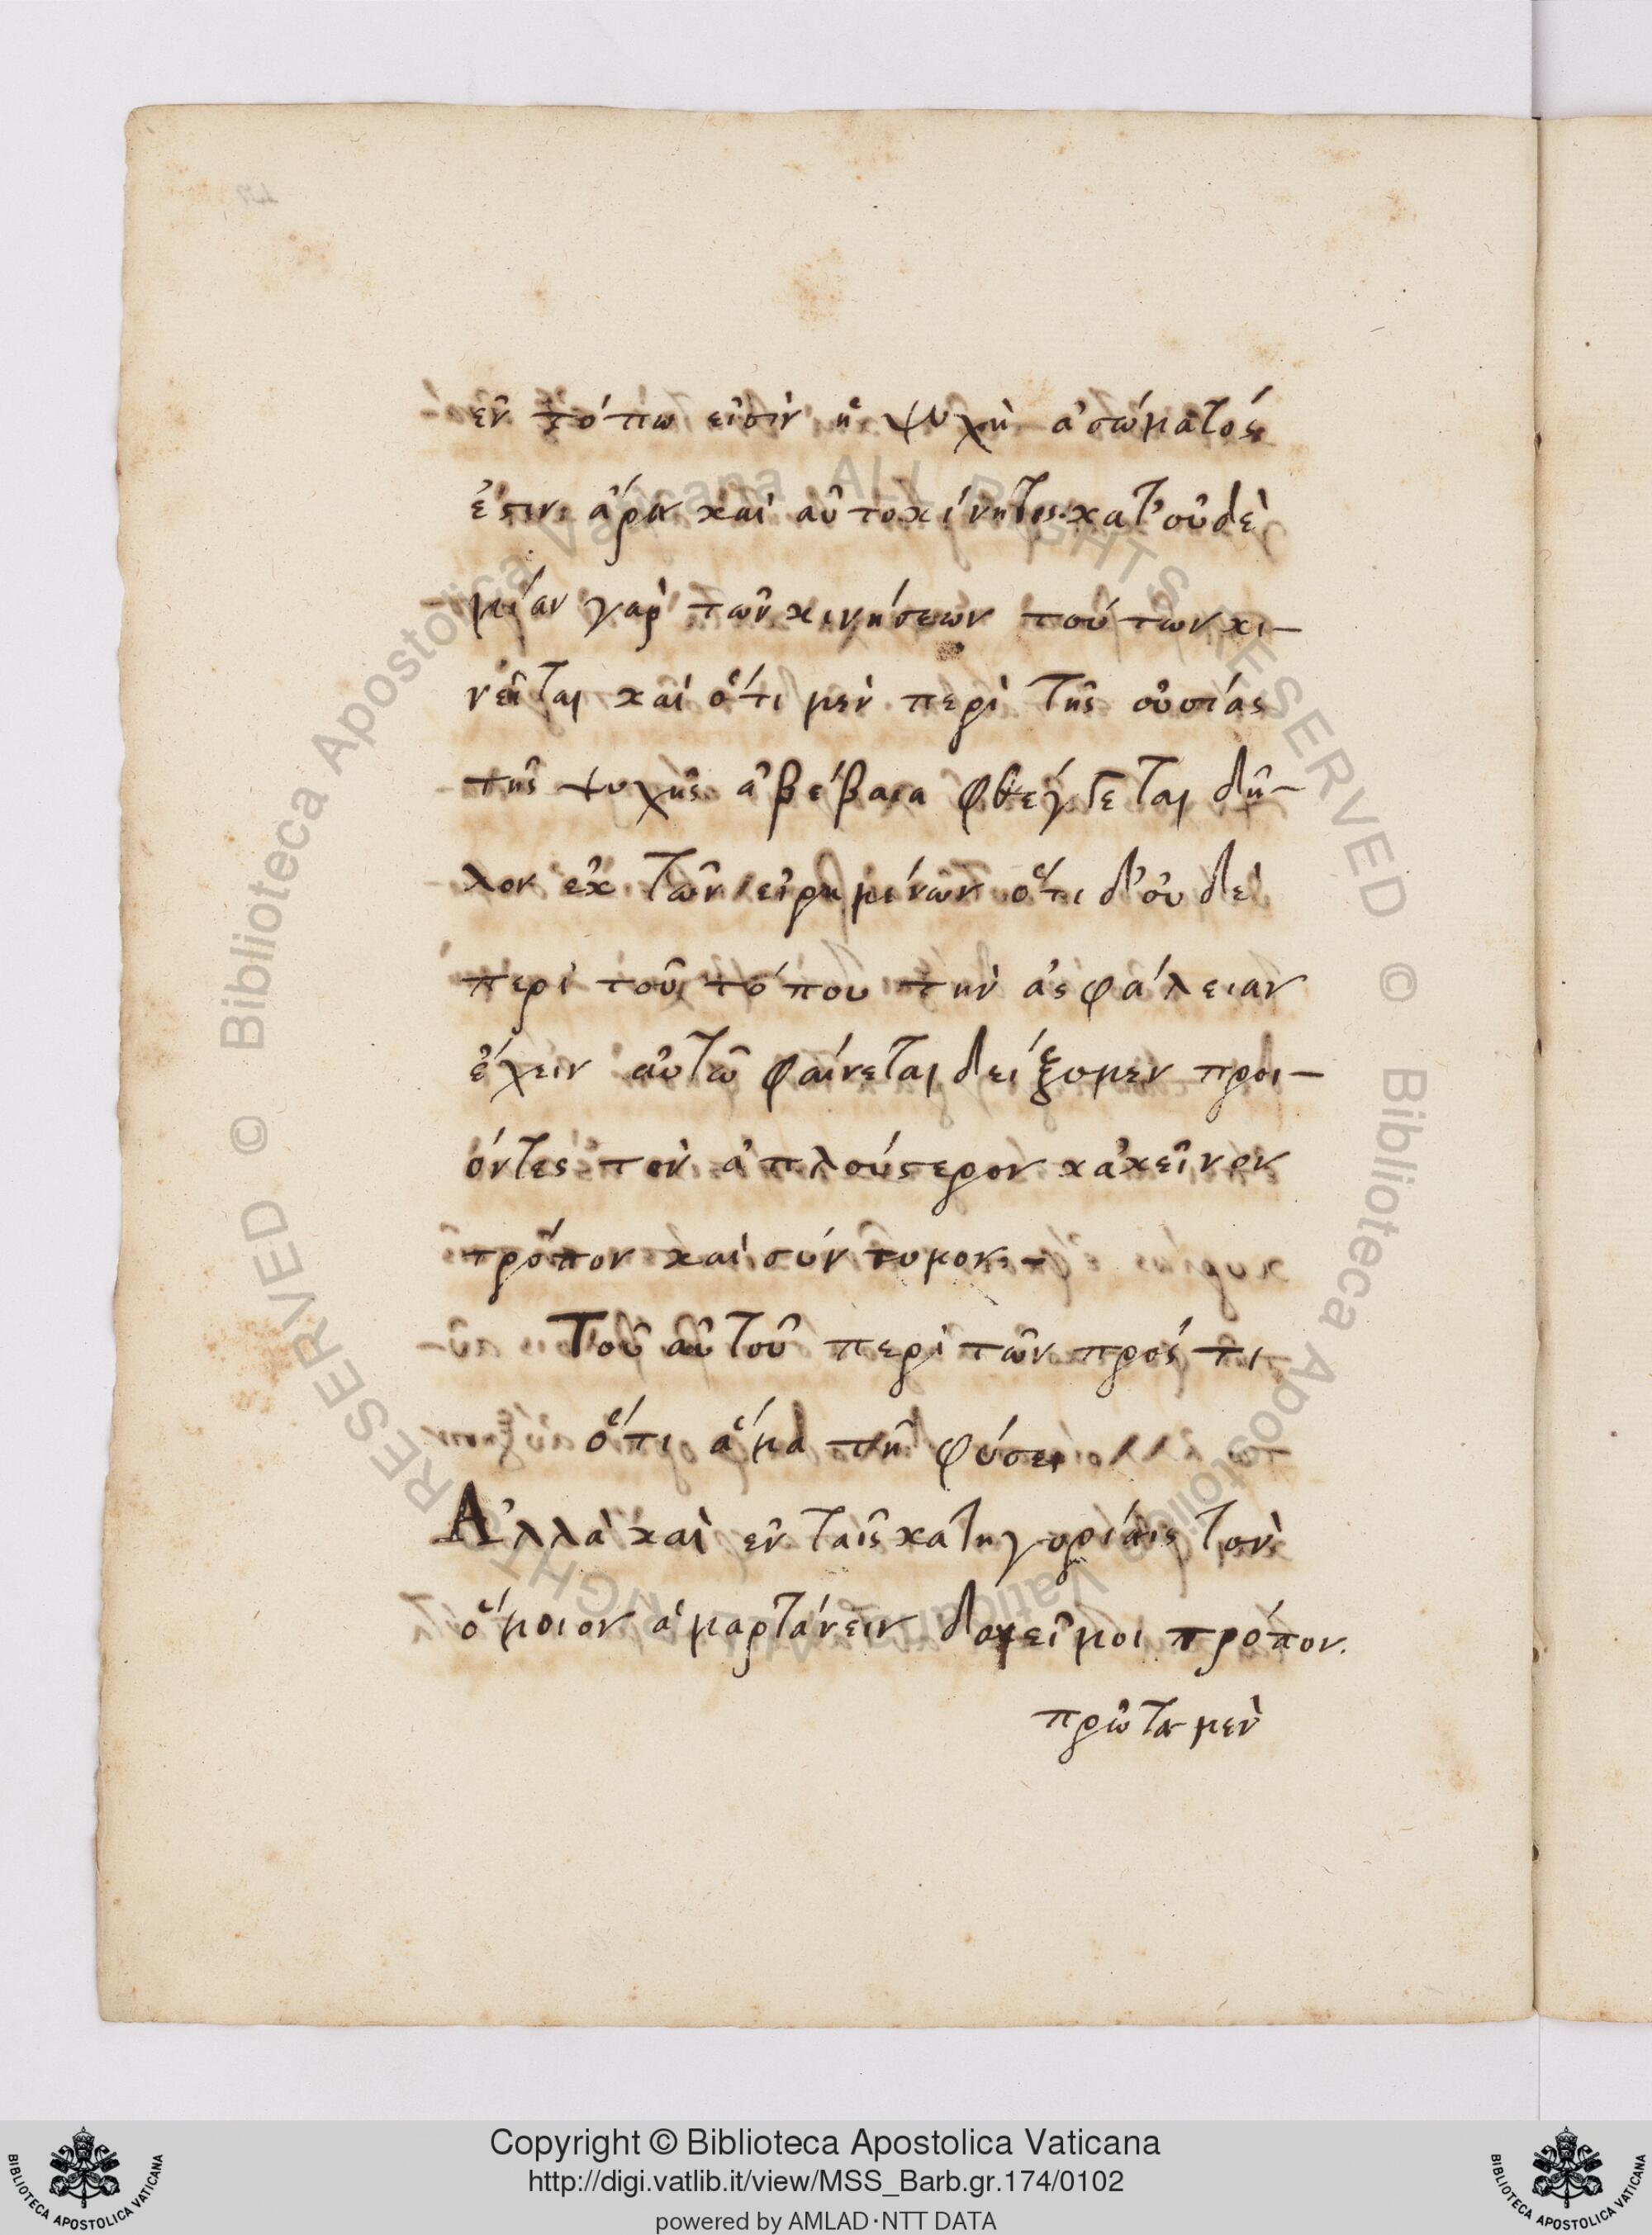 ἐν τόπω εἰσὶν ἡ ψυχὴ ἀσώματός
ἐστιν ἄρα καὶ αὐτοκίνητος· κατ' οὐδὲ
μίαν γὰρ τῶν κινήσεων τούτων κι–
νεῖται καὶ ὅτι μὲν περὶ τῆς οὐσίας
τῆς ψυχῆς ἀβέβαια φθέγγεται δῆ–
λον ἐκ τῶν εἰρημένων ὅτι δ' οὐδὲ
περὶ τοῦ τόπου τὴν ἀσφάλειαν
ἔχειν αὐτῶ φαίνεται δείξομεν προι–
όντες τὸν ἁπλούστερον κἀκεῖνον
τρόπον καὶ σύντομον·–
Τοῦ αὐτοῦ περὶ τῶν πρός τι
ὅτι ἅμα τῆ φύσει
Ἀλλὰ καὶ ἐν ταῖς κατηγορίαις τὸν
ὅμοιον ἁμαρτάνειν δοκεῖ μοι τρόπον.
πρῶτα μὲν
© Biblioteca Apostolica Vaticana ALL RIGHTS RESERVED
© Biblioteca Apostolica Vaticana ALL RIGHTS RESERVED
BIBLIOTECA APOSTOLICA VATICANA
Copyright © Biblioteca Apostolica Vaticana
http://digi.vatlib.it/view/MSS_Barb.gr.174/0102
powered by AMLAD·NTT DATA
BIBLIOTECA APOSTOLICA VATICANA